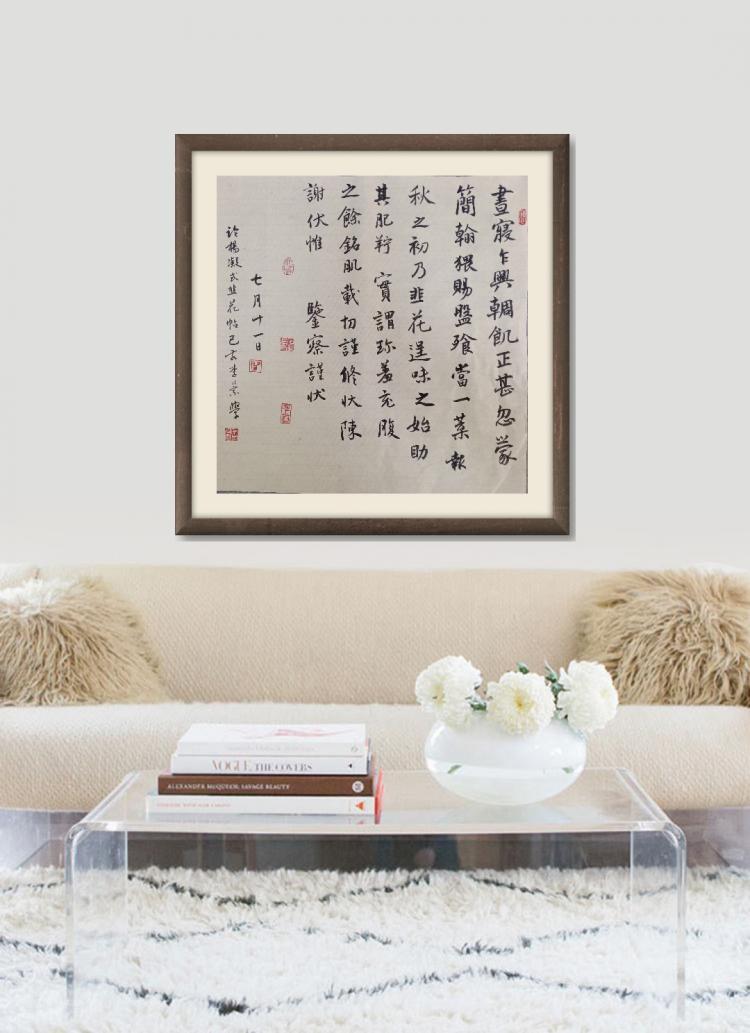 晝寢乍興輖飢正甚忽蒙
簡翰猥賜盤飧當一葉報
秋之初乃韭花逞味之始助
其肥羜實謂珍羞充腹
之餘銘肌載切謹修狀陳
謝伏惟 鑒察謹狀
七月十一日
臨楊凝式韭花帖己亥李學
VOGUE THE COVERS
ALEXANDER McQUEEN: SAVAGE BEAUTY